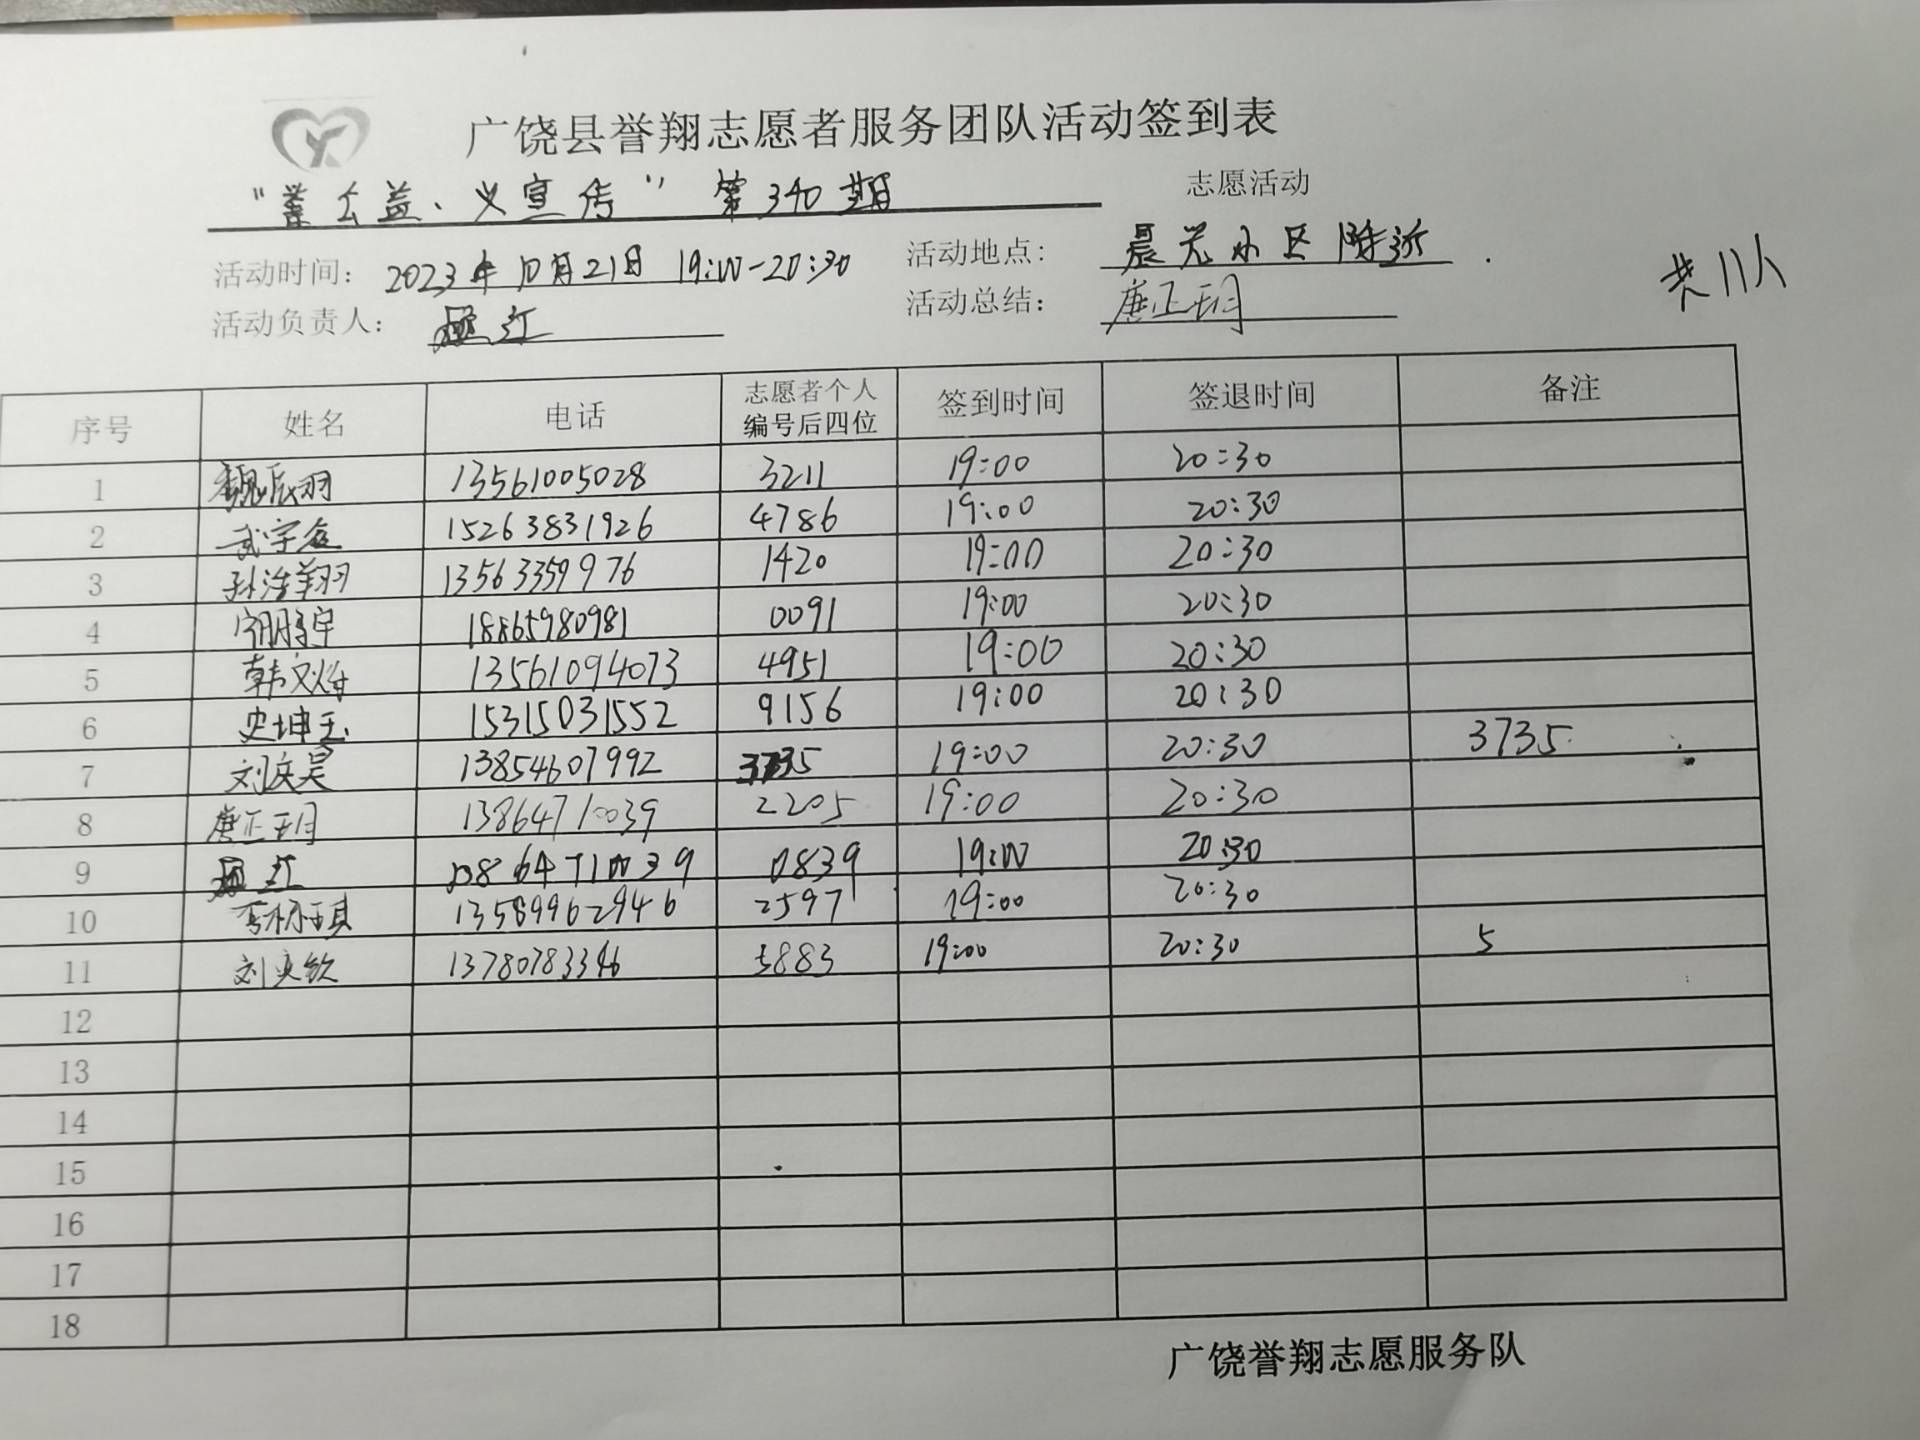 广饶县誉翔志愿者服务团队活动签到表
公益、义宣传” 第340期 志愿活动
活动时间: 2023年10月21日 19:00-20:30 活动地点: 晨光小区附近.
共11人
活动负责人: 江 活动总结: 唐正玥
序号 姓名 电话 志愿者个人编号后四位 签到时间 签退时间 备注
1 魏辰羽 13561005028 3211 19:00 20:30
2 武宇鑫 15263831926 4786 19:00 20:30
3 孙浩翔 13563359976 1420 19:00 20:30
4 18865980981 0091 19:00 20:30
5 韩文 13561094073 4951 19:00 20:30
6 史坤玉 15315031552 9156 19:00 20:30
7 刘庆昊 13854607992 3735 19:00 20:30 3735
8 唐正玥 13864710039 2205 19:00 20:30
9 江 13864710039 0839 19:00 20:30
10 琪 13589962946 2597 19:00 20:30
11 刘奕钦 13780783346 5883 19:00 20:30 5
12
13
14
15
16
17
18
广饶誉翔志愿服务队